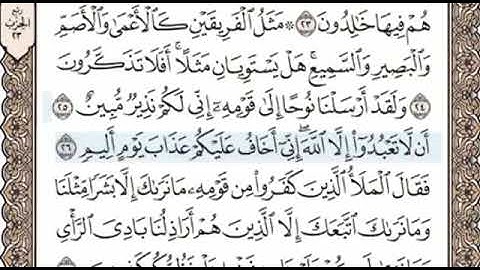 هُمْ فِيهَا خَالِدُونَ ٢٣ ۞ مَثَلُ الْفَرِيقَيْنِ كَالْأَعْمَىٰ وَالْأَصَمِّ
وَالْبَصِيرِ وَالسَّمِيعِ ۚ هَلْ يَسْتَوِيَانِ مَثَلًا ۚ أَفَلَا تَذَكَّرُونَ
٢٤ وَلَقَدْ أَرْسَلْنَا نُوحًا إِلَىٰ قَوْمِهِ إِنِّي لَكُمْ نَذِيرٌ مُبِينٌ ٢٥
أَنْ لَا تَعْبُدُوا إِلَّا اللَّهَ ۖ إِنِّي أَخَافُ عَلَيْكُمْ عَذَابَ يَوْمٍ أَلِيمٍ ٢٦
فَقَالَ الْمَلَأُ الَّذِينَ كَفَرُوا مِنْ قَوْمِهِ مَا نَرَاكَ إِلَّا بَشَرًا مِثْلَنَا
وَمَا نَرَاكَ اتَّبَعَكَ إِلَّا الَّذِينَ هُمْ أَرَاذِلُنَا بَادِيَ الرَّأْيِ
ربع
الحزب
٢٣